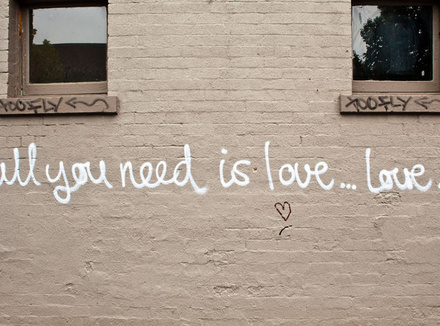 TOOFLY
TOOFLY
all you need is love... love.